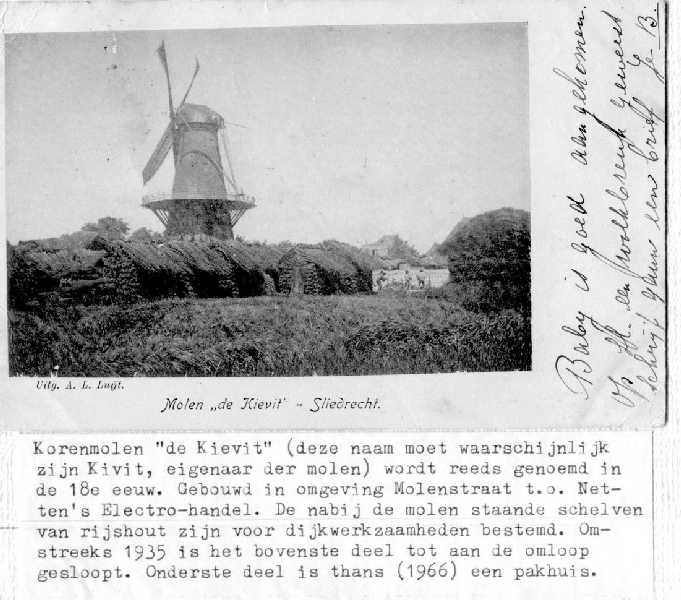 Uitg. A. L. Luijt.
Molen „de Kievit" - Sliedrecht.
Baby is goed aangekomen.
op een geweest.
schrijf gauw een brief je B.
Korenmolen "de Kievit" (deze naam moet waarschijnlijk
zijn Kivit, eigenaar der molen) wordt reeds genoemd in
de 18e eeuw. Gebouwd in omgeving Molenstraat t.o. Net-
ten's Electro-handel. De nabij de molen staande schelven
van rijshout zijn voor dijkwerkzaamheden bestemd. Om-
streeks 1935 is het bovenste deel tot aan de omloop
gesloopt. Onderste deel is thans (1966) een pakhuis.